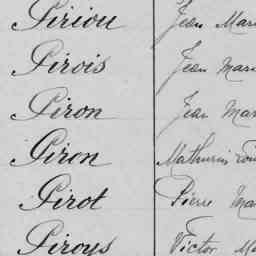 Piriou Jean Mari
Pirois Jean Mari
Piron Jean Mar
Piron Mathurin
Pirot Pierre Ma
Piroys Victor Ma